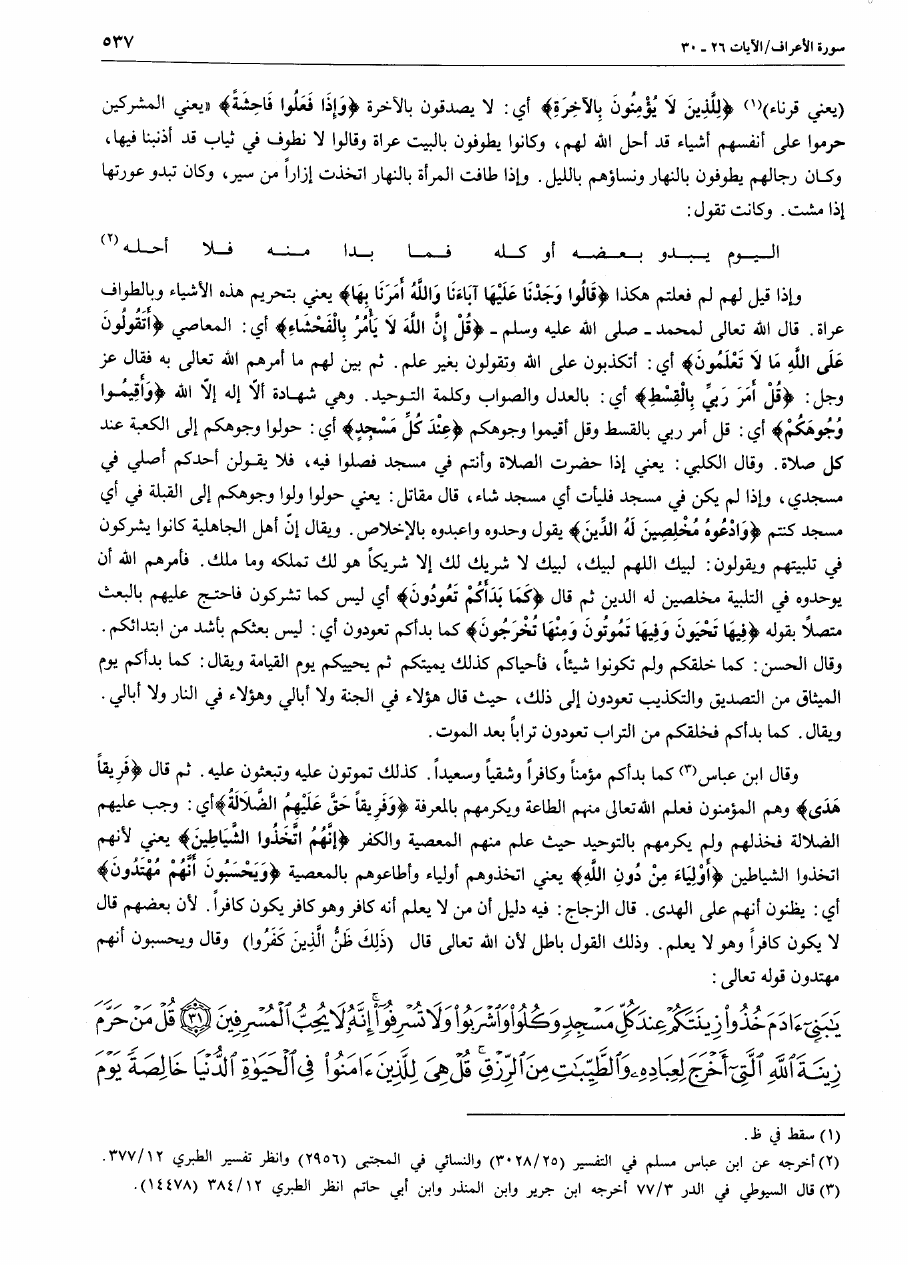 سورة الأعراف/الآيات ٢٦ - ٣٠
٥٣٧
(يعني قرناء)(١) ﴿لِلَّذِينَ لَا يُؤْمِنُونَ بِالآخِرَةِ﴾ أي: لا يصدقون بالآخرة ﴿وَإِذَا فَعَلُوا فَاحِشَةً﴾ «يعني المشركين
حرموا على أنفسهم أشياء قد أحل الله لهم، وكانوا يطوفون بالبيت عراة وقالوا لا نطوف في ثياب قد أذنبنا فيها،
وكان رجالهم يطوفون بالنهار ونساؤهم بالليل. وإذا طافت المرأة بالنهار اتخذت إزاراً من سير، وكان تبدو عورتها
إذا مشت. وكانت تقول:
اليوم يبدو بعضه أو كله فما بدا منه فلا أحله(٢)
وإذا قيل لهم لم فعلتم هكذا ﴿قَالُوا وَجَدْنَا عَلَيْهَا آبَاءَنَا وَاللَّهُ أَمَرَنَا بِهَا﴾ يعني بتحريم هذه الأشياء وبالطواف
عراة. قال الله تعالى لمحمد - صلى الله عليه وسلم - ﴿قُلْ إِنَّ اللَّهَ لَا يَأْمُرُ بِالْفَحْشَاءِ﴾ أي: المعاصي ﴿أَتَقُولُونَ
عَلَى اللَّهِ مَا لَا تَعْلَمُونَ﴾ أي: أتكذبون على الله وتقولون بغير علم. ثم بين لهم ما أمرهم الله تعالى به فقال عز
وجل: ﴿قُلْ أَمَرَ رَبِّي بِالْقِسْطِ﴾ أي: بالعدل والصواب وكلمة التوحيد. وهي شهادة ألّا إله إلّا الله ﴿وَأَقِيمُوا
وُجُوهَكُمْ﴾ أي: قل أمر ربي بالقسط وقل أقيموا وجوهكم ﴿عِنْدَ كُلِّ مَسْجِدٍ﴾ أي: حولوا وجوهكم إلى الكعبة عند
كل صلاة. وقال الكلبي: يعني إذا حضرت الصلاة وأنتم في مسجد فصلوا فيه، فلا يقولن أحدكم أصلي في
مسجدي، وإذا لم يكن في مسجد فليأت أي مسجد شاء، قال مقاتل: يعني حولوا ولوا وجوهكم إلى القبلة في أي
مسجد كنتم ﴿وَادْعُوهُ مُخْلِصِينَ لَهُ الدِّينَ﴾ يقول وحدوه واعبدوه بالإخلاص. ويقال إنّ أهل الجاهلية كانوا يشركون
في تلبيتهم ويقولون: لبيك اللهم لبيك، لبيك لا شريك لك إلا شريكاً هو لك تملكه وما ملك. فأمرهم الله أن
يوحدوه في التلبية مخلصين له الدين ثم قال ﴿كَمَا بَدَأَكُمْ تَعُودُونَ﴾ أي ليس كما تشركون فاحتج عليهم بالبعث
متصلاً بقوله ﴿فِيهَا تَحْيَوْنَ وَفِيهَا تَمُوتُونَ وَمِنْهَا تُخْرَجُونَ﴾ كما بدأكم تعودون أي: ليس بعثكم بأشد من ابتدائكم.
وقال الحسن: كما خلقكم ولم تكونوا شيئاً، فأحياكم كذلك يميتكم ثم يحييكم يوم القيامة ويقال: كما بدأكم يوم
الميثاق من التصديق والتكذيب تعودون إلى ذلك، حيث قال هؤلاء في الجنة ولا أبالي وهؤلاء في النار ولا أبالي.
ويقال. كما بدأكم فخلقكم من التراب تعودون تراباً بعد الموت.
وقال ابن عباس(٣) كما بدأكم مؤمناً وكافراً وشقياً وسعيداً. كذلك تموتون عليه وتبعثون عليه. ثم قال ﴿فَرِيقاً
هَدَى﴾ وهم المؤمنون فعلم الله تعالى منهم الطاعة ويكرمهم بالمعرفة ﴿وَفَرِيقاً حَقَّ عَلَيْهِمُ الضَّلَالَةُ﴾ أي: وجب عليهم
الضلالة فخذلهم ولم يكرمهم بالتوحيد حيث علم منهم المعصية والكفر ﴿إِنَّهُمُ اتَّخَذُوا الشَّيَاطِينَ﴾ يعني لأنهم
اتخذوا الشياطين ﴿أَوْلِيَاءَ مِنْ دُونِ اللَّهِ﴾ يعني اتخذوهم أولياء وأطاعوهم بالمعصية ﴿وَيَحْسَبُونَ أَنَّهُمْ مُهْتَدُونَ﴾
أي: يظنون أنهم على الهدى. قال الزجاج: فيه دليل أن من لا يعلم أنه كافر وهو كافر يكون كافراً. لأن بعضهم قال
لا يكون كافراً وهو لا يعلم. وذلك القول باطل لأن الله تعالى قال (ذَلِكَ ظَنُّ الَّذِينَ كَفَرُوا) وقال ويحسبون أنهم
مهتدون قوله تعالى:
يَٰبَنِىٓ ءَادَمَ خُذُوا۟ زِينَتَكُمْ عِندَ كُلِّ مَسْجِدٍ وَكُلُوا۟ وَٱشْرَبُوا۟ وَلَا تُسْرِفُوٓا۟ ۚ إِنَّهُۥ لَا يُحِبُّ ٱلْمُسْرِفِينَ ﴿٣١﴾ قُلْ مَنْ حَرَّمَ
زِينَةَ ٱللَّهِ ٱلَّتِىٓ أَخْرَجَ لِعِبَادِهِۦ وَٱلطَّيِّبَٰتِ مِنَ ٱلرِّزْقِ ۚ قُلْ هِىَ لِلَّذِينَ ءَامَنُوا۟ فِى ٱلْحَيَوٰةِ ٱلدُّنْيَا خَالِصَةً يَوْمَ
(١) سقط في ظ.
(٢) أخرجه عن ابن عباس مسلم في التفسير (٣٠٢٨/٢٥) والنسائي في المجتبى (٢٩٥٦) وانظر تفسير الطبري ٣٧٧/١٢.
(٣) قال السيوطي في الدر ٧٧/٣ أخرجه ابن جرير وابن المنذر وابن أبي حاتم انظر الطبري ٣٨٤/١٢ (١٤٤٧٨).